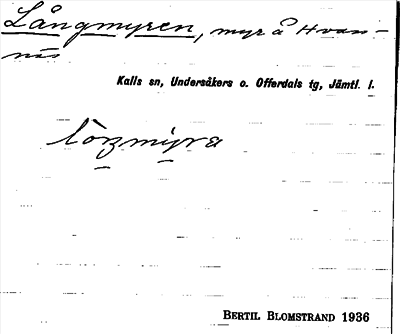 Långmyren, myr å Hvan-
näs
Kalls sn, Undersåkers o. Offerdals tg, Jämtl. l.
BERTIL BLOMSTRAND 1936